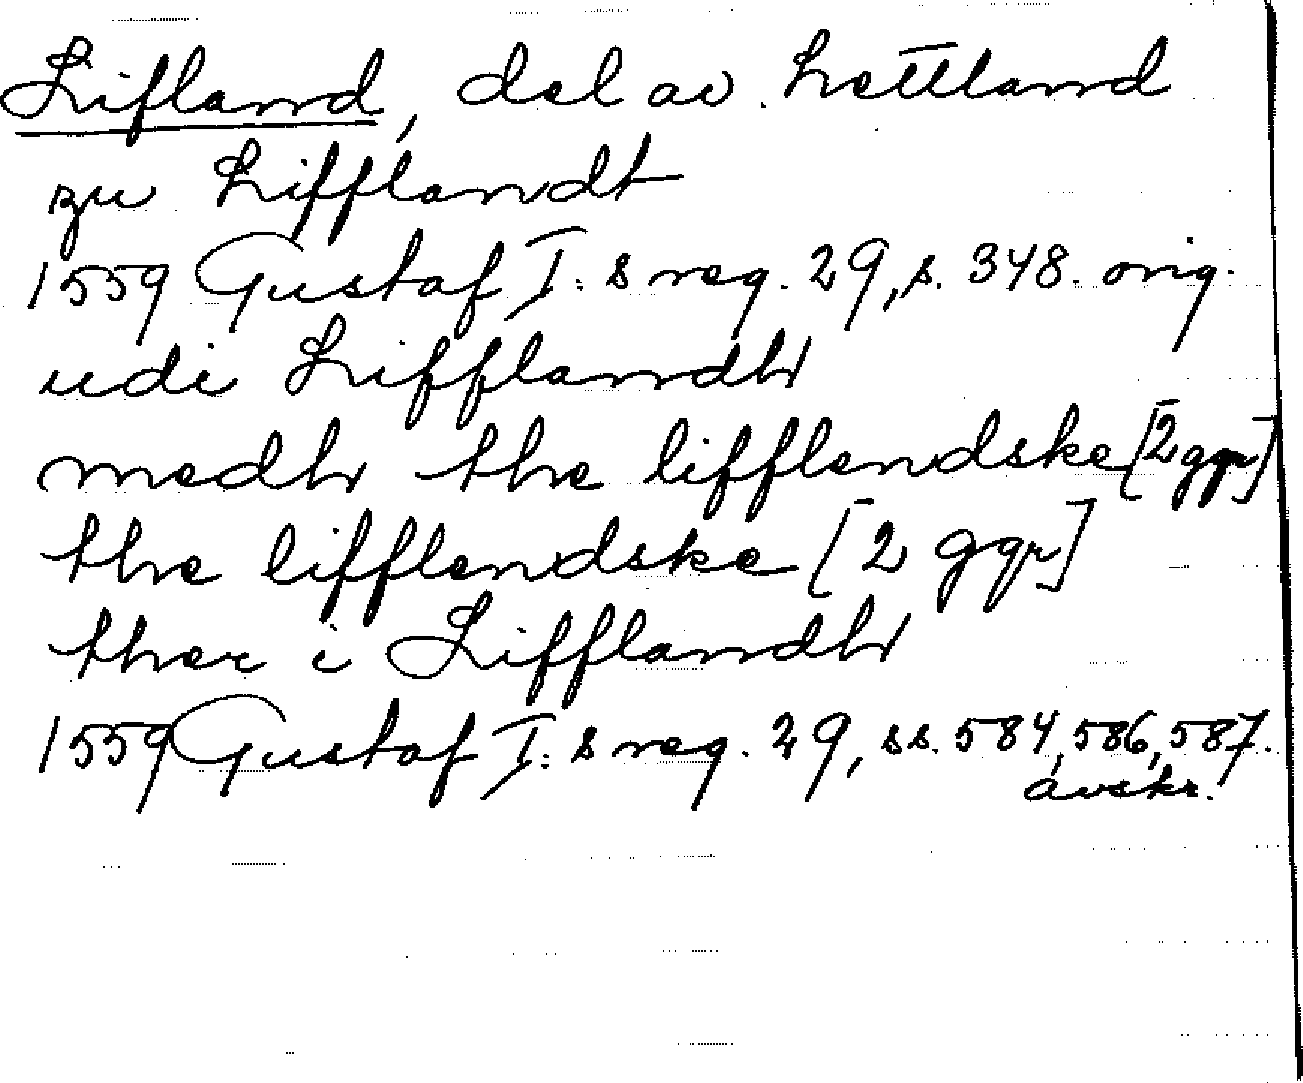 Lifland, del av Lettland
zu Lifflandt
1559 Gustaf I:s reg. 29, s. 348. orig.
udi Lifflandh
medh the lifflendske [2 ggr]
the lifflendske [2 ggr]
ther i Lifflandh
1559 Gustaf I:s reg. 29, ss. 584, 586, 587.
avskr.